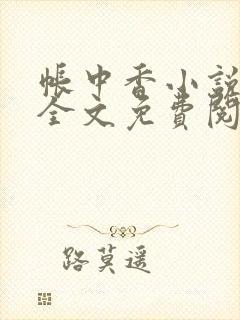 帳中香小說
全文免費閱
路莫遥